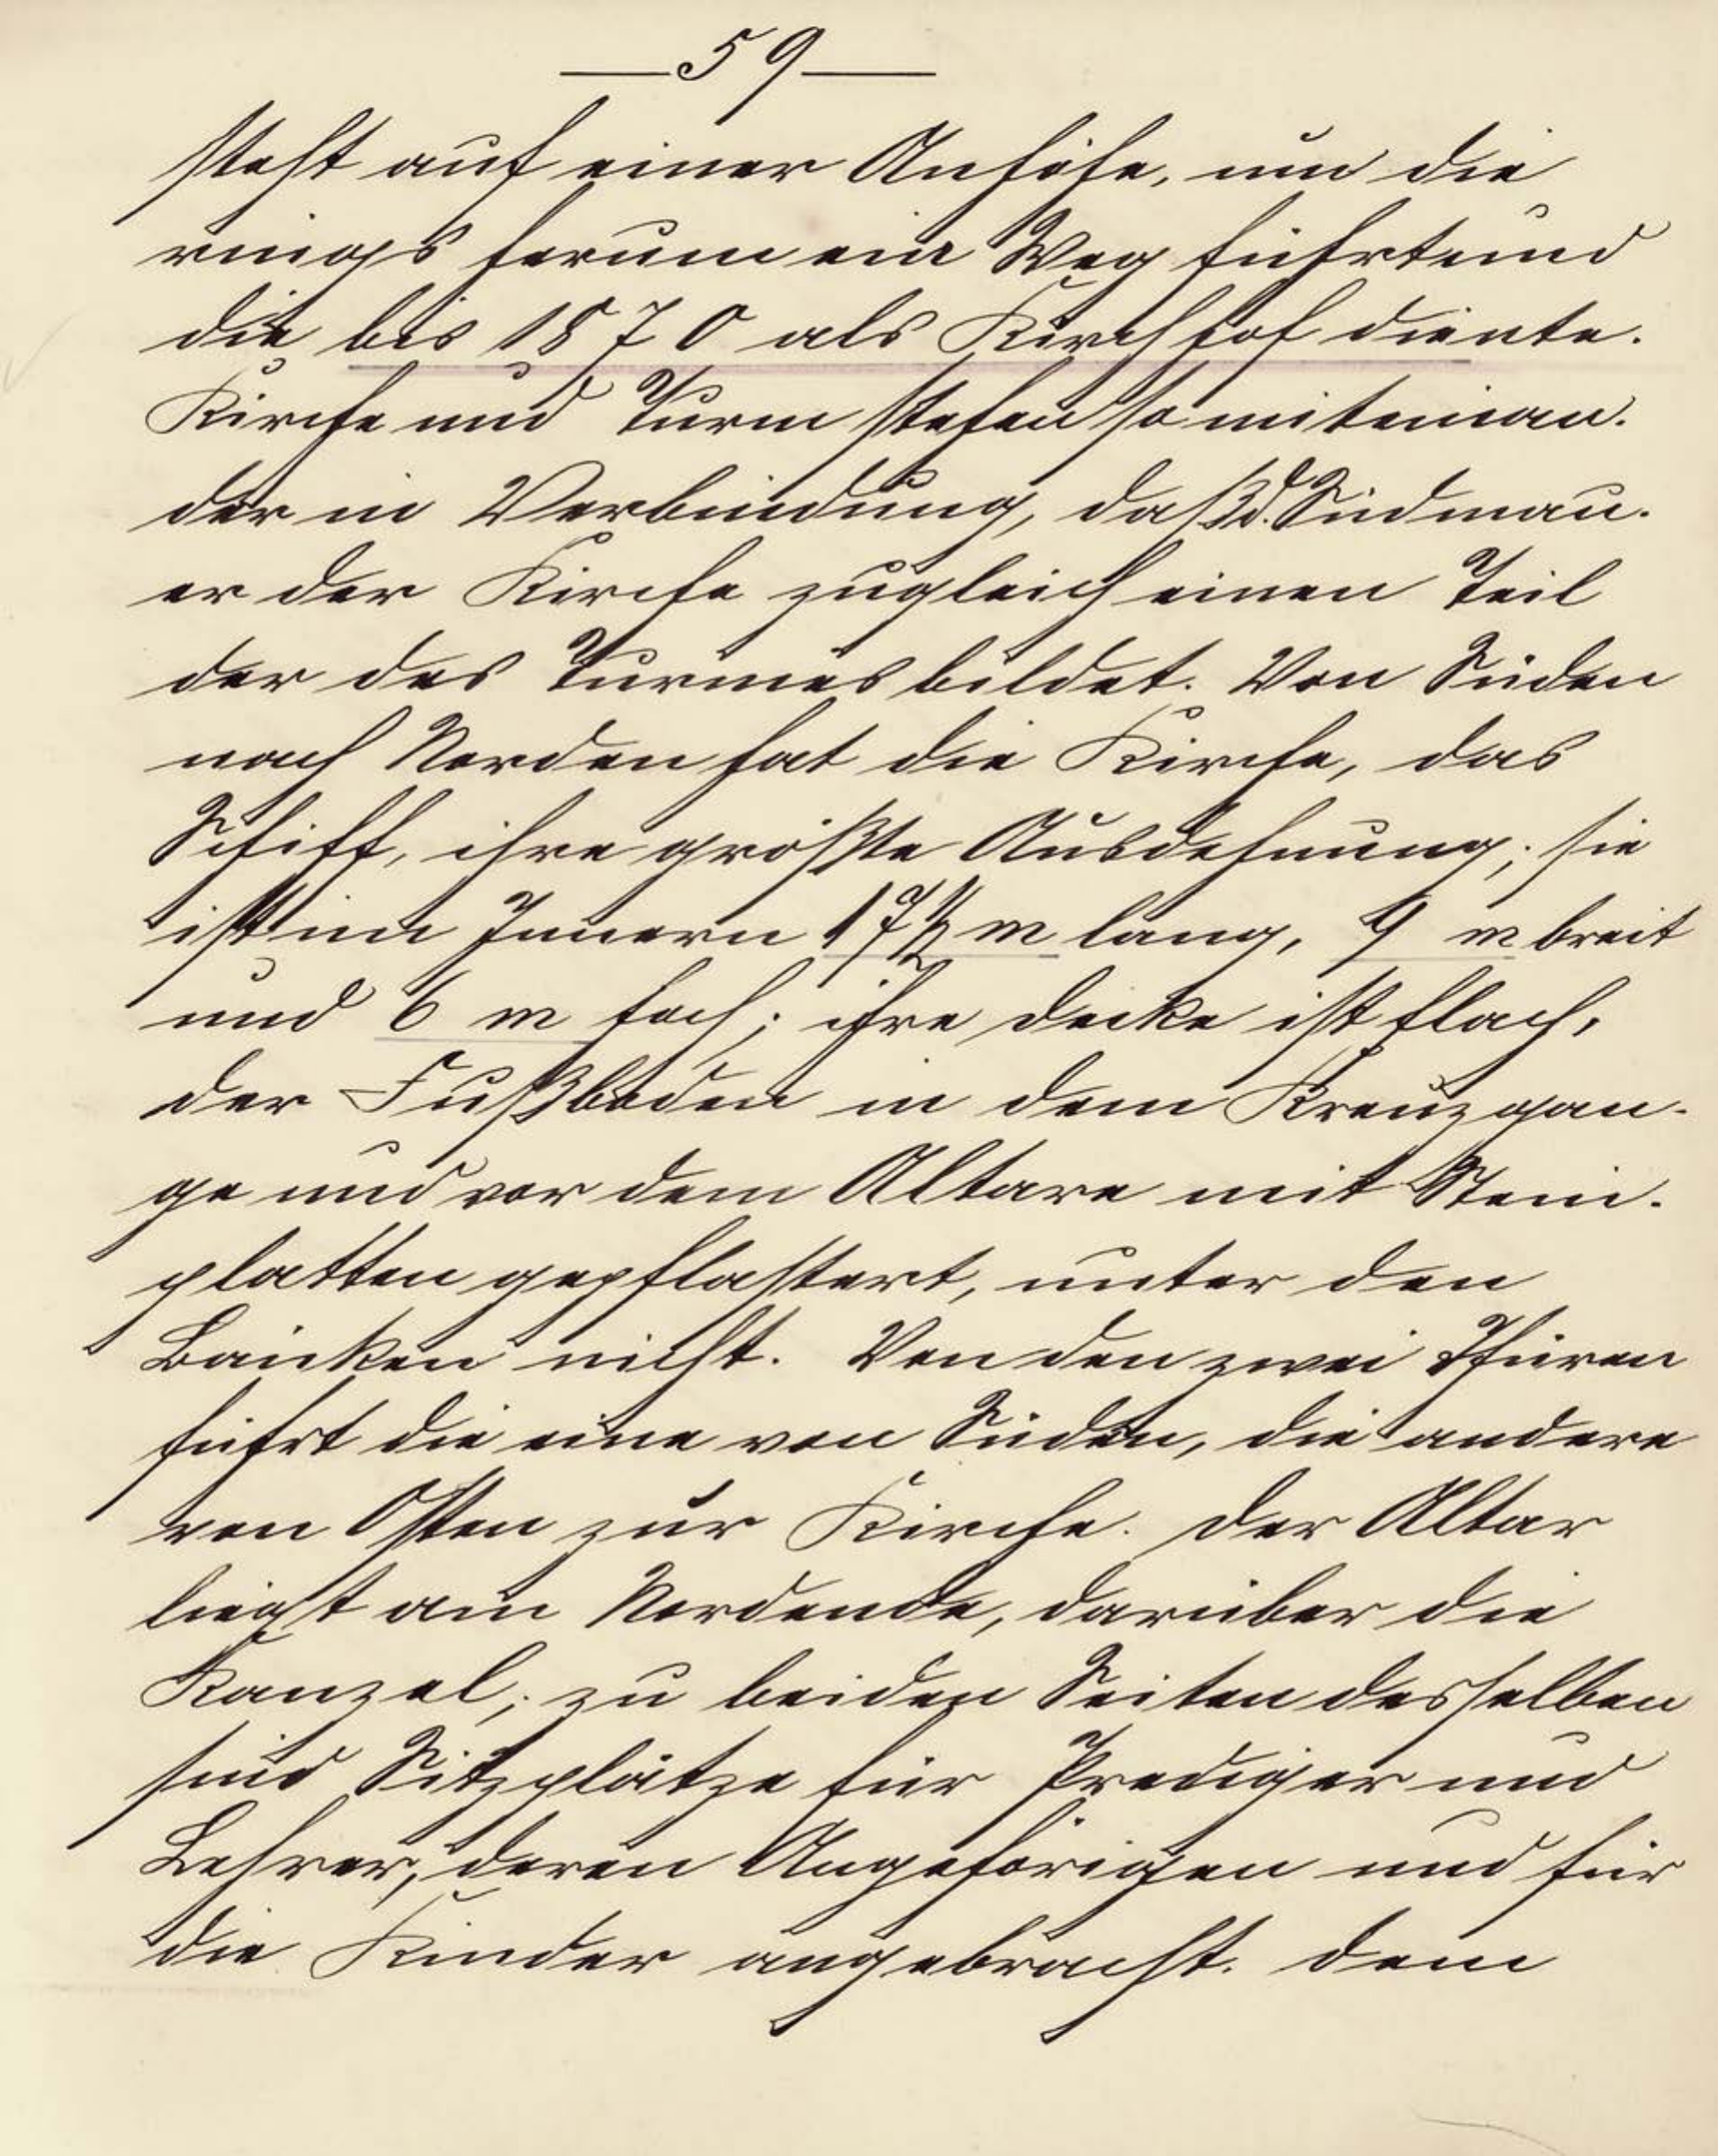 — 59 —
steht auf einer Anhöhe, um die
rings herum ein Weg führt und
die bis 1870 als Kirchhof diente.
Kirche und Turm stehen so miteinan-
der in Verbindung, daß d. Südmau-
er der Kirche zugleich einen Teil
der des Turmes bildet. Von Süden
nach Norden hat die Kirche, das
Schiff, ihre größte Ausdehnung; sie
ist im Innern 17 1/2 m lang, 9 m breit
und 6 m hoch; ihre Decke ist flach,
der Fußboden in dem Kreuzgan-
ge und vor dem Altare mit Stein-
platten gepflastert, unter den
Bänken nicht. Von den zwei Thüren
führt die eine von Süden, die andere
von Osten zur Kirche. Der Altar
liegt am Nordende, darüber die
Kanzel; zu beiden Seiten desselben
sind Sitzplätze für Prediger und
Lehrer, deren Angehörigen und für
die Kinder angebracht. Dem